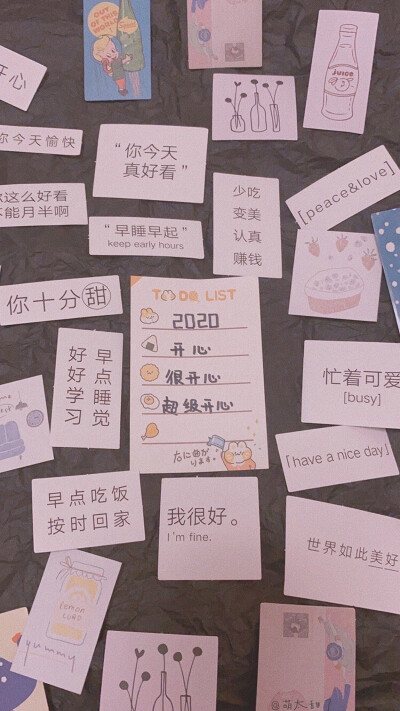 OUT OF
THIS
WORLD
开心
你今天愉快
"你今天
真好看"
JUICE
[peace&love]
这么好看
不能月半啊
"早睡早起"
keep early hours
少吃
变美
认真
赚钱
你十分甜
TO DO LIST
2020
开心
很开心
超级开心
右に曲が
ります。
早点睡觉
好好学习
忙着可爱
[busy]
「have a nice day」
早点吃饭
按时回家
我很好。
I'm fine.
世界如此美好
lemon
yummy